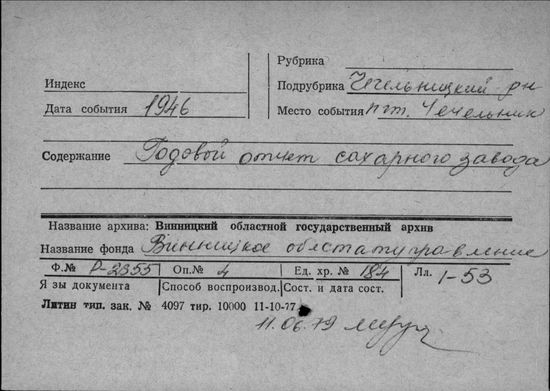 Рубрика
Индекс
Подрубрика Чечельницкий р-н
Дата события 1946
Место события пгт. Чечельник
Содержание Годовой отчет сахарного завода
Название архива: Винницкий областной государственный архив
Название фонда Винницкое облстатуправление
Ф.№ Р-2355 Оп.№ 4 Ед. хр. № 184 Лл. 1-53
Я зы документа Способ воспроизвод. Сост. и дата сост.
Литин тип. зак. № 4097 тир. 10000 11-10-77
11.06.79